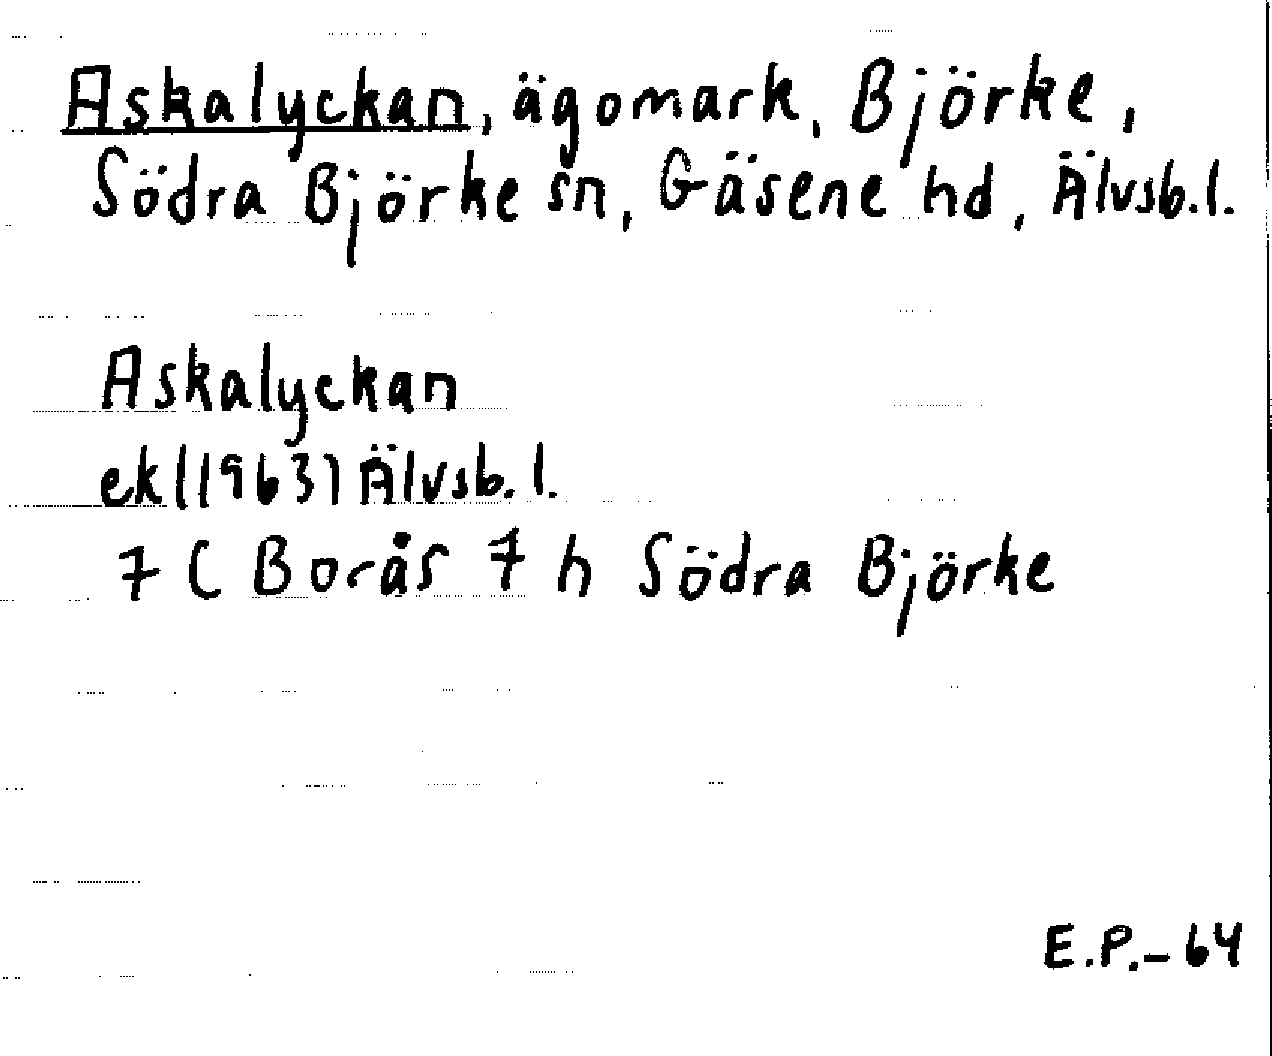 Askalyckan, ägomark, Björke,
Södra Björke sn, Gäsene hd, Älvsb.l.
Askalyckan
ek(1963) Älvsb.l.
7 C Borås 7 h Södra Björke
E.P.-64